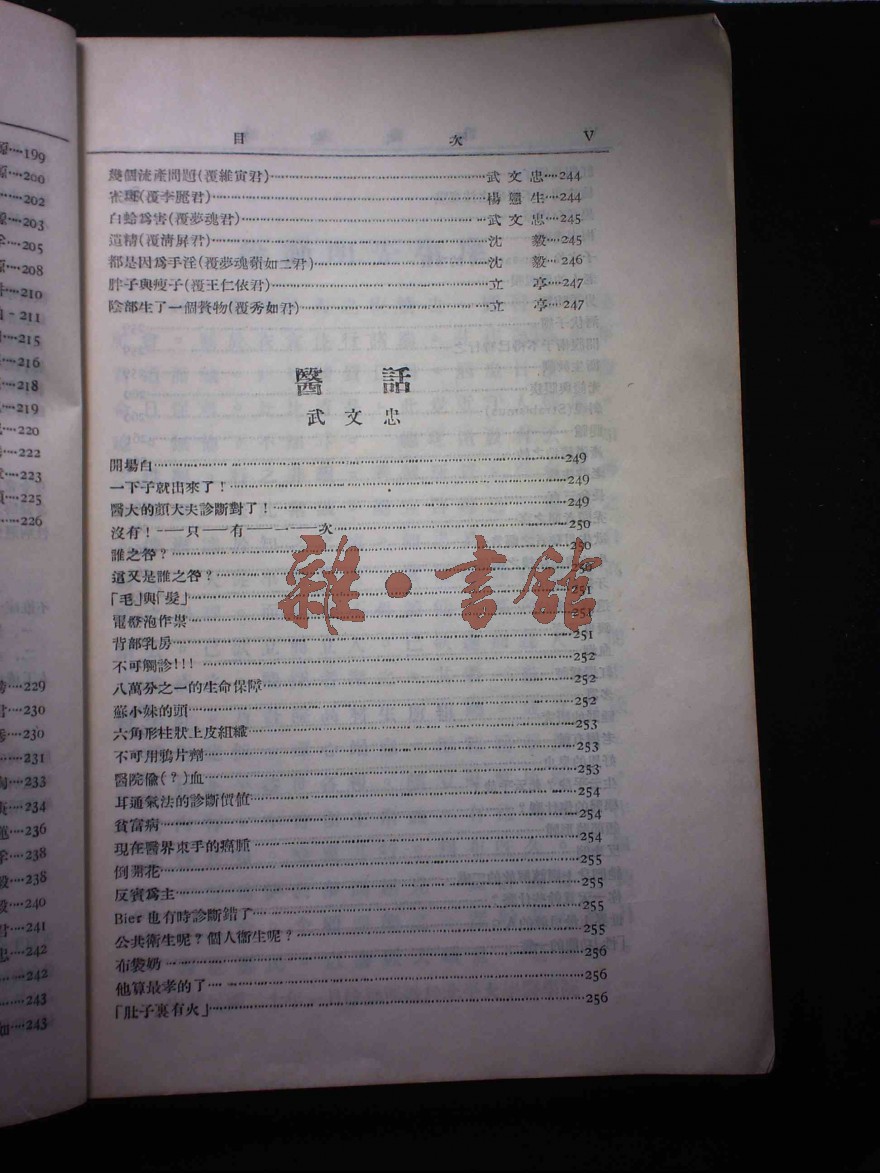 目 次 V
幾個流產問題(覆維寅君)……武文忠…244
雀斑(覆李麗君)……楊 生…244
白蛤爲害(覆夢魂君)……武文忠…245
遺精(覆淸屏君)……沈 毅…245
都是因爲手淫(覆夢魂 如二君)……沈 毅…246
胖子與瘦子(覆王仁依君)……立 亭…247
陰部生了一個贅物(覆秀如君)……立 亭…247
醫 話
武文忠
開場白……249
一下子就出來了!……249
醫大的顏大夫診斷對了!……249
沒有!——只——有——一——次……250
誰之咎?……250
這又是誰之咎?……250
「毛」與「髮」……251
電燈泡作祟……251
背部乳房……251
不可觸診!!!……252
八萬分之一的生命保障……252
蘇小妹的頭……252
六角形柱狀上皮組織……253
不可用鴉片劑……253
醫院偸(?)血……253
耳通氣法的診斷價値……254
貧富病……254
現在醫界束手的癌腫……254
倒開花……255
反賓爲主……255
Bier也有時診斷錯了……255
公共衞生呢?個人衞生呢?……255
布袋奶……256
他算最孝的了……256
「肚子裏有火」……256
199
200
202
203
205
208
210
211
215
216
218
219
220
222
223
225
226
229
230
230
231
233
234
236
238
238
240
241
242
242
243
243
雜·書館